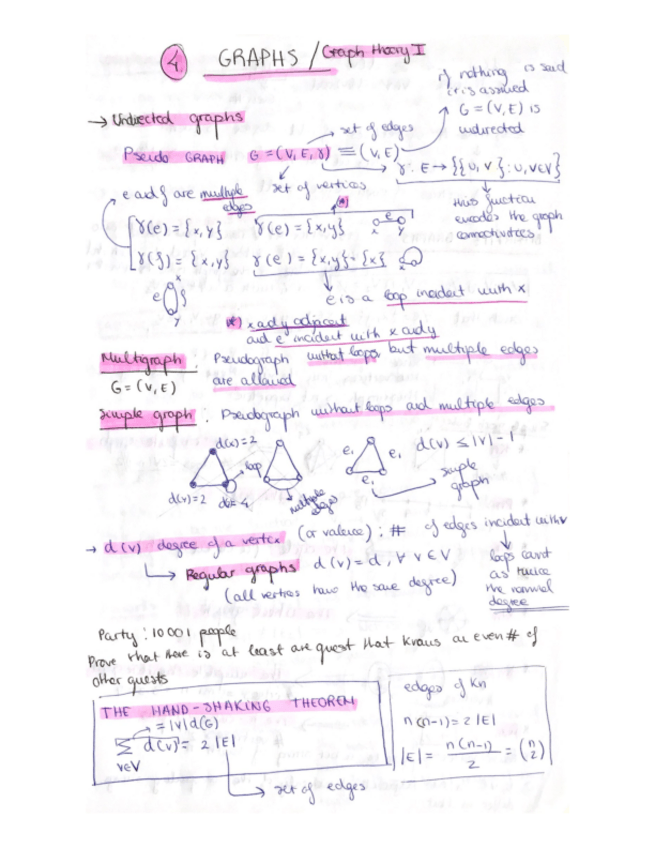 4. GRAPHS / Graph theory I
if nothing is said
it is assumed
G = (V, E) is
undirected
→ Undirected graphs
→ set of edges
Pseudo GRAPH G = (V, E, γ) ≡ (V, E)
γ: E → {{U, V}: U, V∈V}
set of vertices
this function
encodes the graph
connectivities
e and f are multiple
edges
(*)
γ(e) = {x,y} γ(e) = {x,y} e x y
γ(f) = {x,y} γ(e) = {x,y} = {x} x
x e f y
e is a loop incident with x
(*) x and y adjacent
and e incident with x and y
Multigraph : Pseudograph without loops but multiple edges
G = (V, E) are allowed
Simple graph : Pseudograph without loops and multiple edges
d(v) = 2 loop e₁ e₁ e₁ d(v) ≤ |V| - 1
d(v) = 2 d(v) = 4 multiple edges simple graph
→ d(v) degree of a vertex (or valence) : # of edges incident with v
↳ Regular graphs d(v) = d, ∀ v ∈ V
(all vertices have the same degree)
loops count
as twice
the normal
degree
Party : 10001 people
Prove that there is at least one guest that knows an even # of
other guests
THE HAND-SHAKING THEOREM
= |V| d(G)
∑ d(v) = 2 |E|
v∈V
→ set of edges
edges of Kn
n(n-1) = 2 |E|
|E| = n(n-1)/2 = (n 2)